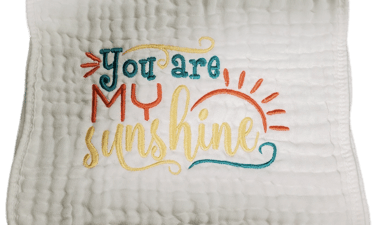 You are
MY
sunshine